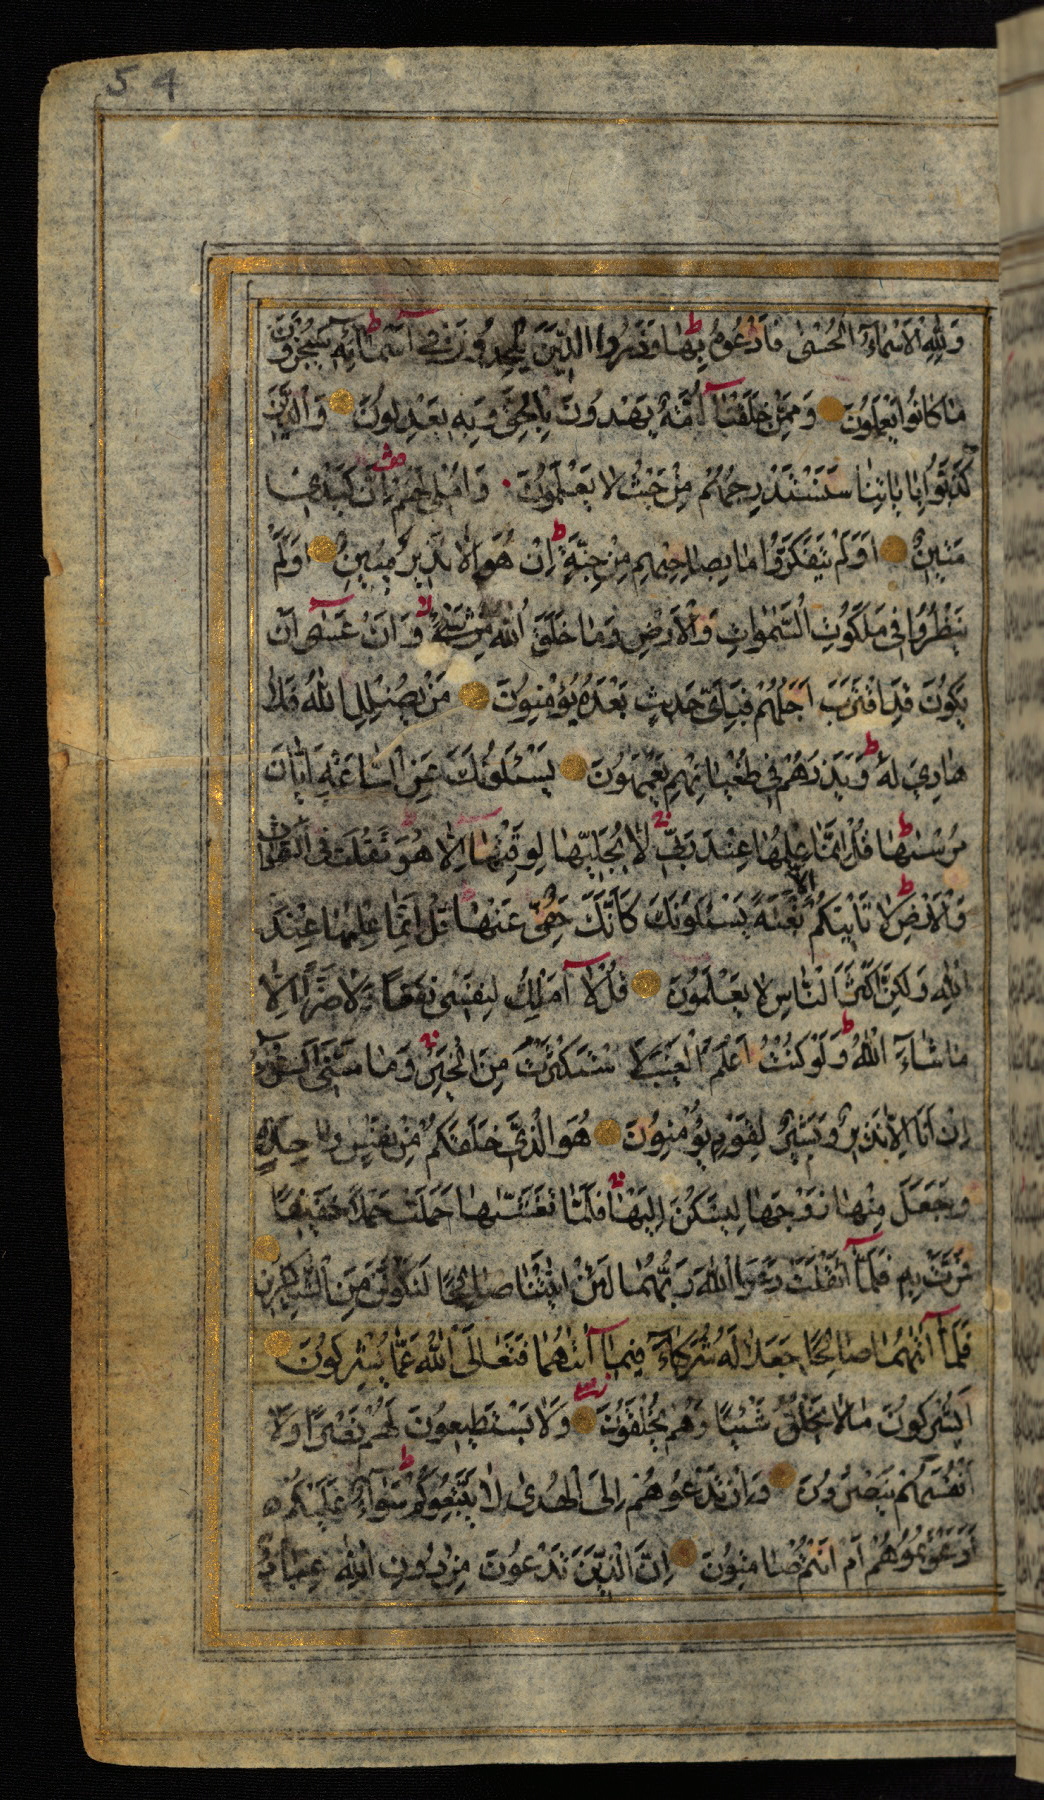 54
وَلِلَّهِ الْأَسْمَاءُ الْحُسْنَىٰ فَادْعُوهُ بِهَا وَذَرُوا الَّذِينَ يُلْحِدُونَ فِي أَسْمَائِهِ سَيُجْزَوْنَ
مَا كَانُوا يَعْمَلُونَ وَمِمَّنْ خَلَقْنَا أُمَّةٌ يَهْدُونَ بِالْحَقِّ وَبِهِ يَعْدِلُونَ وَالَّذِينَ
كَذَّبُوا بِآيَاتِنَا سَنَسْتَدْرِجُهُمْ مِنْ حَيْثُ لَا يَعْلَمُونَ وَأُمْلِي لَهُمْ إِنَّ كَيْدِي
مَتِينٌ أَوَلَمْ يَتَفَكَّرُوا مَا بِصَاحِبِهِمْ مِنْ جِنَّةٍ إِنْ هُوَ إِلَّا نَذِيرٌ مُبِينٌ أَوَلَمْ
يَنْظُرُوا فِي مَلَكُوتِ السَّمٰوَاتِ وَالْأَرْضِ وَمَا خَلَقَ اللَّهُ مِنْ شَيْءٍ وَأَنْ عَسَىٰ أَنْ
يَكُونَ قَدِ اقْتَرَبَ أَجَلُهُمْ فَبِأَيِّ حَدِيثٍ بَعْدَهُ يُؤْمِنُونَ مَنْ يُضْلِلِ اللَّهُ فَلَا
هَادِيَ لَهُ وَيَذَرُهُمْ فِي طُغْيَانِهِمْ يَعْمَهُونَ يَسْـَٔلُونَكَ عَنِ السَّاعَةِ أَيَّانَ
مُرْسٰىهَا قُلْ إِنَّمَا عِلْمُهَا عِنْدَ رَبِّي لَا يُجَلِّيهَا لِوَقْتِهَا إِلَّا هُوَ ثَقُلَتْ فِي السَّمٰوَاتِ
وَالْأَرْضِ لَا تَأْتِيكُمْ إِلَّا بَغْتَةً يَسْـَٔلُونَكَ كَأَنَّكَ حَفِيٌّ عَنْهَا قُلْ إِنَّمَا عِلْمُهَا عِنْدَ
اللَّهِ وَلَٰكِنَّ أَكْثَرَ النَّاسِ لَا يَعْلَمُونَ قُلْ لَا أَمْلِكُ لِنَفْسِي نَفْعًا وَلَا ضَرًّا إِلَّا
مَا شَاءَ اللَّهُ وَلَوْ كُنْتُ أَعْلَمُ الْغَيْبَ لَاسْتَكْثَرْتُ مِنَ الْخَيْرِ وَمَا مَسَّنِيَ السُّوءُ
إِنْ أَنَا إِلَّا نَذِيرٌ وَبَشِيرٌ لِقَوْمٍ يُؤْمِنُونَ هُوَ الَّذِي خَلَقَكُمْ مِنْ نَفْسٍ وَاحِدَةٍ
وَجَعَلَ مِنْهَا زَوْجَهَا لِيَسْكُنَ إِلَيْهَا فَلَمَّا تَغَشّٰىهَا حَمَلَتْ حَمْلًا خَفِيفًا
فَمَرَّتْ بِهِ فَلَمَّا أَثْقَلَتْ دَعَوَا اللَّهَ رَبَّهُمَا لَئِنْ آتَيْتَنَا صَالِحًا لَنَكُونَنَّ مِنَ الشَّاكِرِينَ
فَلَمَّا آتٰىهُمَا صَالِحًا جَعَلَا لَهُ شُرَكَاءَ فِيمَا آتٰىهُمَا فَتَعَالَى اللَّهُ عَمَّا يُشْرِكُونَ
أَيُشْرِكُونَ مَا لَا يَخْلُقُ شَيْئًا وَهُمْ يُخْلَقُونَ وَلَا يَسْتَطِيعُونَ لَهُمْ نَصْرًا وَلَا
أَنْفُسَهُمْ يَنْصُرُونَ وَإِنْ تَدْعُوهُمْ إِلَى الْهُدَىٰ لَا يَتَّبِعُوكُمْ سَوَاءٌ عَلَيْكُمْ
أَدَعَوْتُمُوهُمْ أَمْ أَنْتُمْ صَامِتُونَ إِنَّ الَّذِينَ تَدْعُونَ مِنْ دُونِ اللَّهِ عِبَادٌ